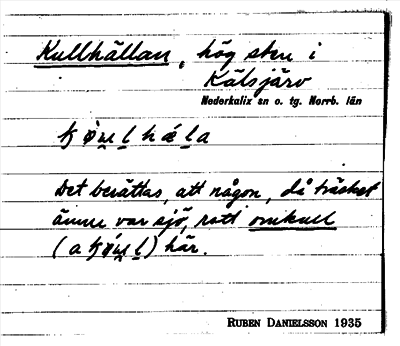 Kullhällan, hög sten i
Kälsjärv
Nederkalix sn o. tg. Norrb. län
Det berättas, att någon, då träsket
ännu var sjö, rott omkull
här.
RUBEN DANIELSSON 1935